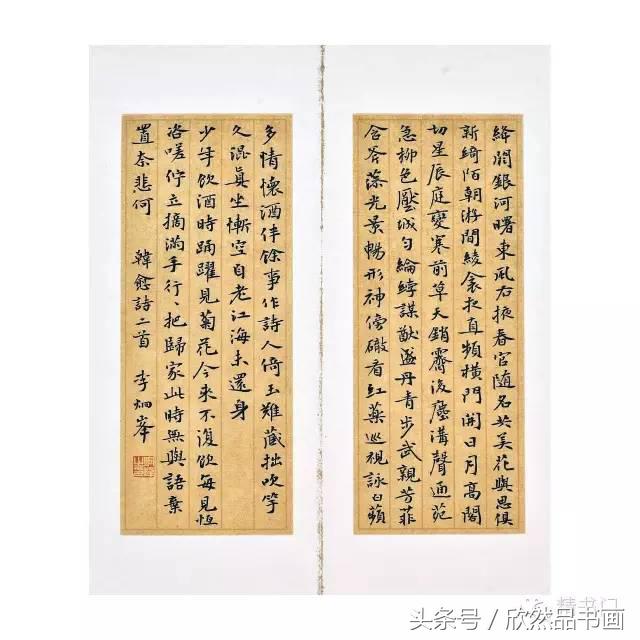 絳闕銀河曙東風右掖春官随名共美花與思俱
新綺陌朝游間綾衾夜直頻橫門開日月高閣
切星辰庭變寒前草天銷霽後塵溝聲通苑
急柳色壓城匀綸綍謀猷盛丹青步武親芳菲
含斧藻光景暢形神傍砌看紅藥巡池詠白蘋
多情懷酒伴餘事作詩人倚玉難藏拙吹竽
久混真坐慚空自老江海未還身
少年飲酒時踊躍見菊花今來不復飲每見恆
咨嗟佇立摘滿手行〻把歸家此時無與語棄
置奈悲何 韓愈詩二首 李炯峯
精书门
头条号/欣然品书画